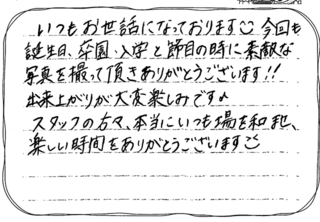 いつもお世話になっております☺ 今回も
誕生日、卒園・入学と節目の時に素敵な
写真を撮って頂きありがとうございます!!
出来上がりが大変楽しみです♪
スタッフの方々、本当にいつも場を和ませ、
楽しい時間をありがとうございます☺